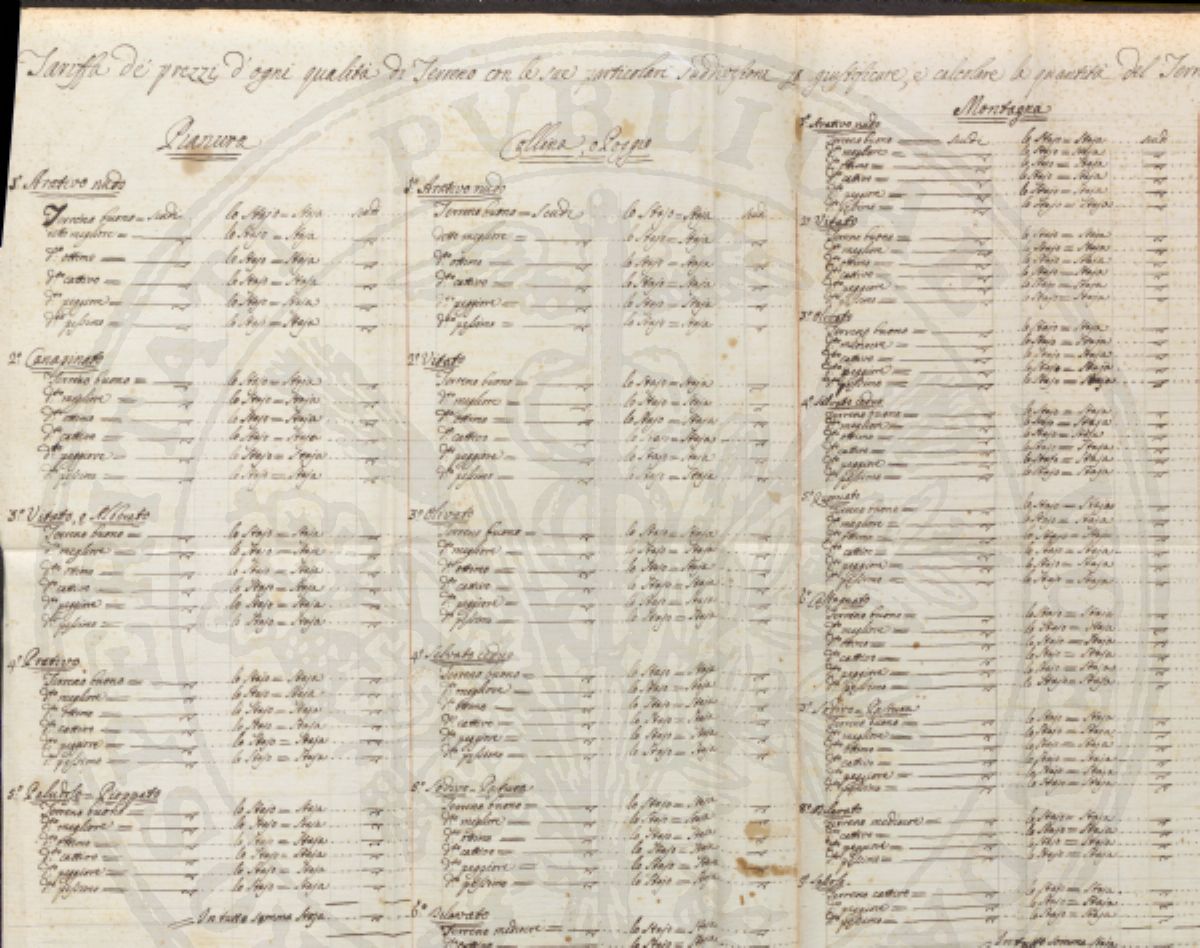 Tariffa de' prezzi d'ogni qualità di Terreno con le sue particolare Suddivisione p giustificare, e calcolare la quantità del Terr
Pianura
1.º Arativo nudo
Terreno buono = Scudi lo Stajo = Staja scudi
detto megliore = lo Stajo = Staja
d.º ottimo = lo Stajo = Staja
d.to cattivo = lo Stajo = Staja
d.to peggiore = lo Stajo = Staja
d.to pessimo = lo Stajo = Staja
2.º Canapinato
Terreno buono = lo Stajo = Staja
d.to megliore = lo Stajo = Staja
d.to ottimo = lo Stajo = Staja
d.to cattivo = lo Stajo = Staja
d.to peggiore = lo Stajo = Staja
d.to pessimo = lo Stajo = Staja
3.º Vitato, e Alberato
Terreno buono = lo Stajo = Staja
d.º megliore = lo Stajo = Staja
d.to ottimo = lo Stajo = Staja
d.to cattivo = lo Stajo = Staja
d.to peggiore = lo Stajo = Staja
d.to pessimo = lo Stajo = Staja
4.º Prativo
Terreno buono = lo Stajo = Staja
d.to megliore = lo Stajo = Staja
d.to ottimo = lo Stajo = Staja
d.to cattivo = lo Stajo = Staja
d.to peggiore = lo Stajo = Staja
d.to pessimo = lo Stajo = Staja
5.º
Terreno buono = lo Stajo = Staja
d.to megliore = lo Stajo = Staja
d.to ottimo = lo Stajo = Staja
d.to cattivo = lo Stajo = Staja
d.to peggiore = lo Stajo = Staja
d.to pessimo = lo Stajo = Staja
In tutto somma Staja
Collina, o Poggio
1.º Arativo nudo
Terreno buono = Scudi lo Stajo = Staja scudi
detto megliore = lo Stajo = Staja
d.to ottimo = lo Stajo = Staja
d.to cattivo = lo Stajo = Staja
d.to peggiore = lo Stajo = Staja
d.to pessimo = lo Stajo = Staja
2.º Vitato
Terreno buono = lo Stajo = Staja
d.to megliore = lo Stajo = Staja
d.to ottimo = lo Stajo = Staja
d.to cattivo = lo Stajo = Staja
d.to peggiore = lo Stajo = Staja
d.to pessimo = lo Stajo = Staja
3.º Olivato
Terreno buono = lo Stajo = Staja
d.to megliore = lo Stajo = Staja
d.to ottimo = lo Stajo = Staja
d.to cattivo = lo Stajo = Staja
d.to peggiore = lo Stajo = Staja
d.to pessimo = lo Stajo = Staja
4.º Selvato ceduo
Terreno buono = lo Stajo = Staja
d.to megliore = lo Stajo = Staja
d.to ottimo = lo Stajo = Staja
d.to cattivo = lo Stajo = Staja
d.to peggiore = lo Stajo = Staja
d.to pessimo = lo Stajo = Staja
5.º Sodivo = Pastura
Terreno buono = lo Stajo = Staja
d.to megliore = lo Stajo = Staja
d.to ottimo = lo Stajo = Staja
d.to cattivo = lo Stajo = Staja
d.to peggiore = lo Stajo = Staja
d.to pessimo = lo Stajo = Staja
6.º Dilavato
Terreno mediocre = lo Stajo = Staja
d.to cattivo = lo Stajo = Staja
Montagna
1.º Arativo nudo
Terreno buono = Scudi lo Stajo = Staja scudi
d.to megliore = lo Stajo = Staja
d.to ottimo = lo Stajo = Staja
d.to cattivo = lo Stajo = Staja
d.to peggiore = lo Stajo = Staja
d.to pessimo = lo Stajo = Staja
2.º Vitato
Terreno buono = lo Stajo = Staja
d.to megliore = lo Stajo = Staja
d.to ottimo = lo Stajo = Staja
d.to cattivo = lo Stajo = Staja
d.to peggiore = lo Stajo = Staja
d.to pessimo = lo Stajo = Staja
3.º Olivato
Terreno buono = lo Stajo = Staja
d.to mediocre = lo Stajo = Staja
d.to cattivo = lo Stajo = Staja
d.to peggiore = lo Stajo = Staja
d.to pessimo = lo Stajo = Staja
4.º Selvato ceduo
Terreno buono = lo Stajo = Staja
d.to megliore = lo Stajo = Staja
d.to ottimo = lo Stajo = Staja
d.to cattivo = lo Stajo = Staja
d.to peggiore = lo Stajo = Staja
d.to pessimo = lo Stajo = Staja
5.º
Terreno buono = lo Stajo = Staja
d.to megliore = lo Stajo = Staja
d.to ottimo = lo Stajo = Staja
d.to cattivo = lo Stajo = Staja
d.to peggiore = lo Stajo = Staja
d.to pessimo = lo Stajo = Staja
6.º Castagnato
Terreno buono = lo Stajo = Staja
d.to megliore = lo Stajo = Staja
d.to ottimo = lo Stajo = Staja
d.to cattivo = lo Stajo = Staja
d.to peggiore = lo Stajo = Staja
d.to pessimo = lo Stajo = Staja
7.º Sodivo = Pastura
Terreno buono = lo Stajo = Staja
d.to megliore = lo Stajo = Staja
d.to ottimo = lo Stajo = Staja
d.to cattivo = lo Stajo = Staja
d.to peggiore = lo Stajo = Staja
d.to pessimo = lo Stajo = Staja
8.º Dilavato
Terreno mediocre = lo Stajo = Staja
d.to cattivo = lo Stajo = Staja
d.to peggiore = lo Stajo = Staja
d.to pessimo = lo Stajo = Staja
9.º
Terreno cattivo = lo Stajo = Staja
d.to peggiore = lo Stajo = Staja
d.to pessimo = lo Stajo = Staja
In tutto somma Staja